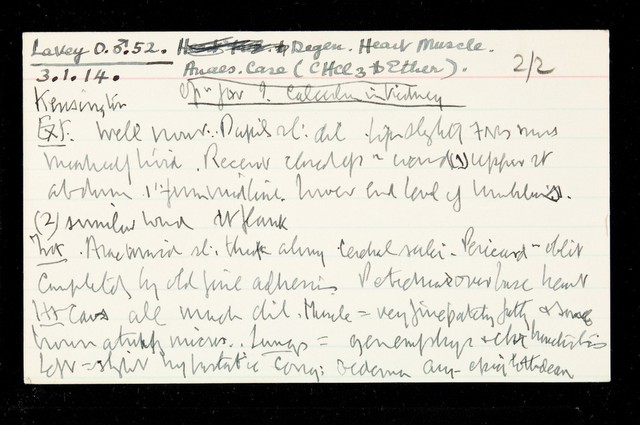 Lavey O. ♂. 52. Degen. Heart Muscle. 2/2
3.1.14. Anaes. Case (CHCl3 & Ether).
Kensington Opn for ? Calculus in Kidney
Ext. Well nour. Pupils sl. dil. lips slightly
livid. Recent closed op wound (1) upper rt
abdomen 1" from midline. Lower end level of umbilicus.
(2) similar wound rt flank
Arachnoid sl. thick along sulci. Pericard = oblit
completely by old fine adhesions over base heart
Ht Cavs all much dil. Muscle = very fine patchy fatty & some
brown atrophy micros. Lungs = gen emphys & chr bronchitis
left = slight hypostatic cong: oedema